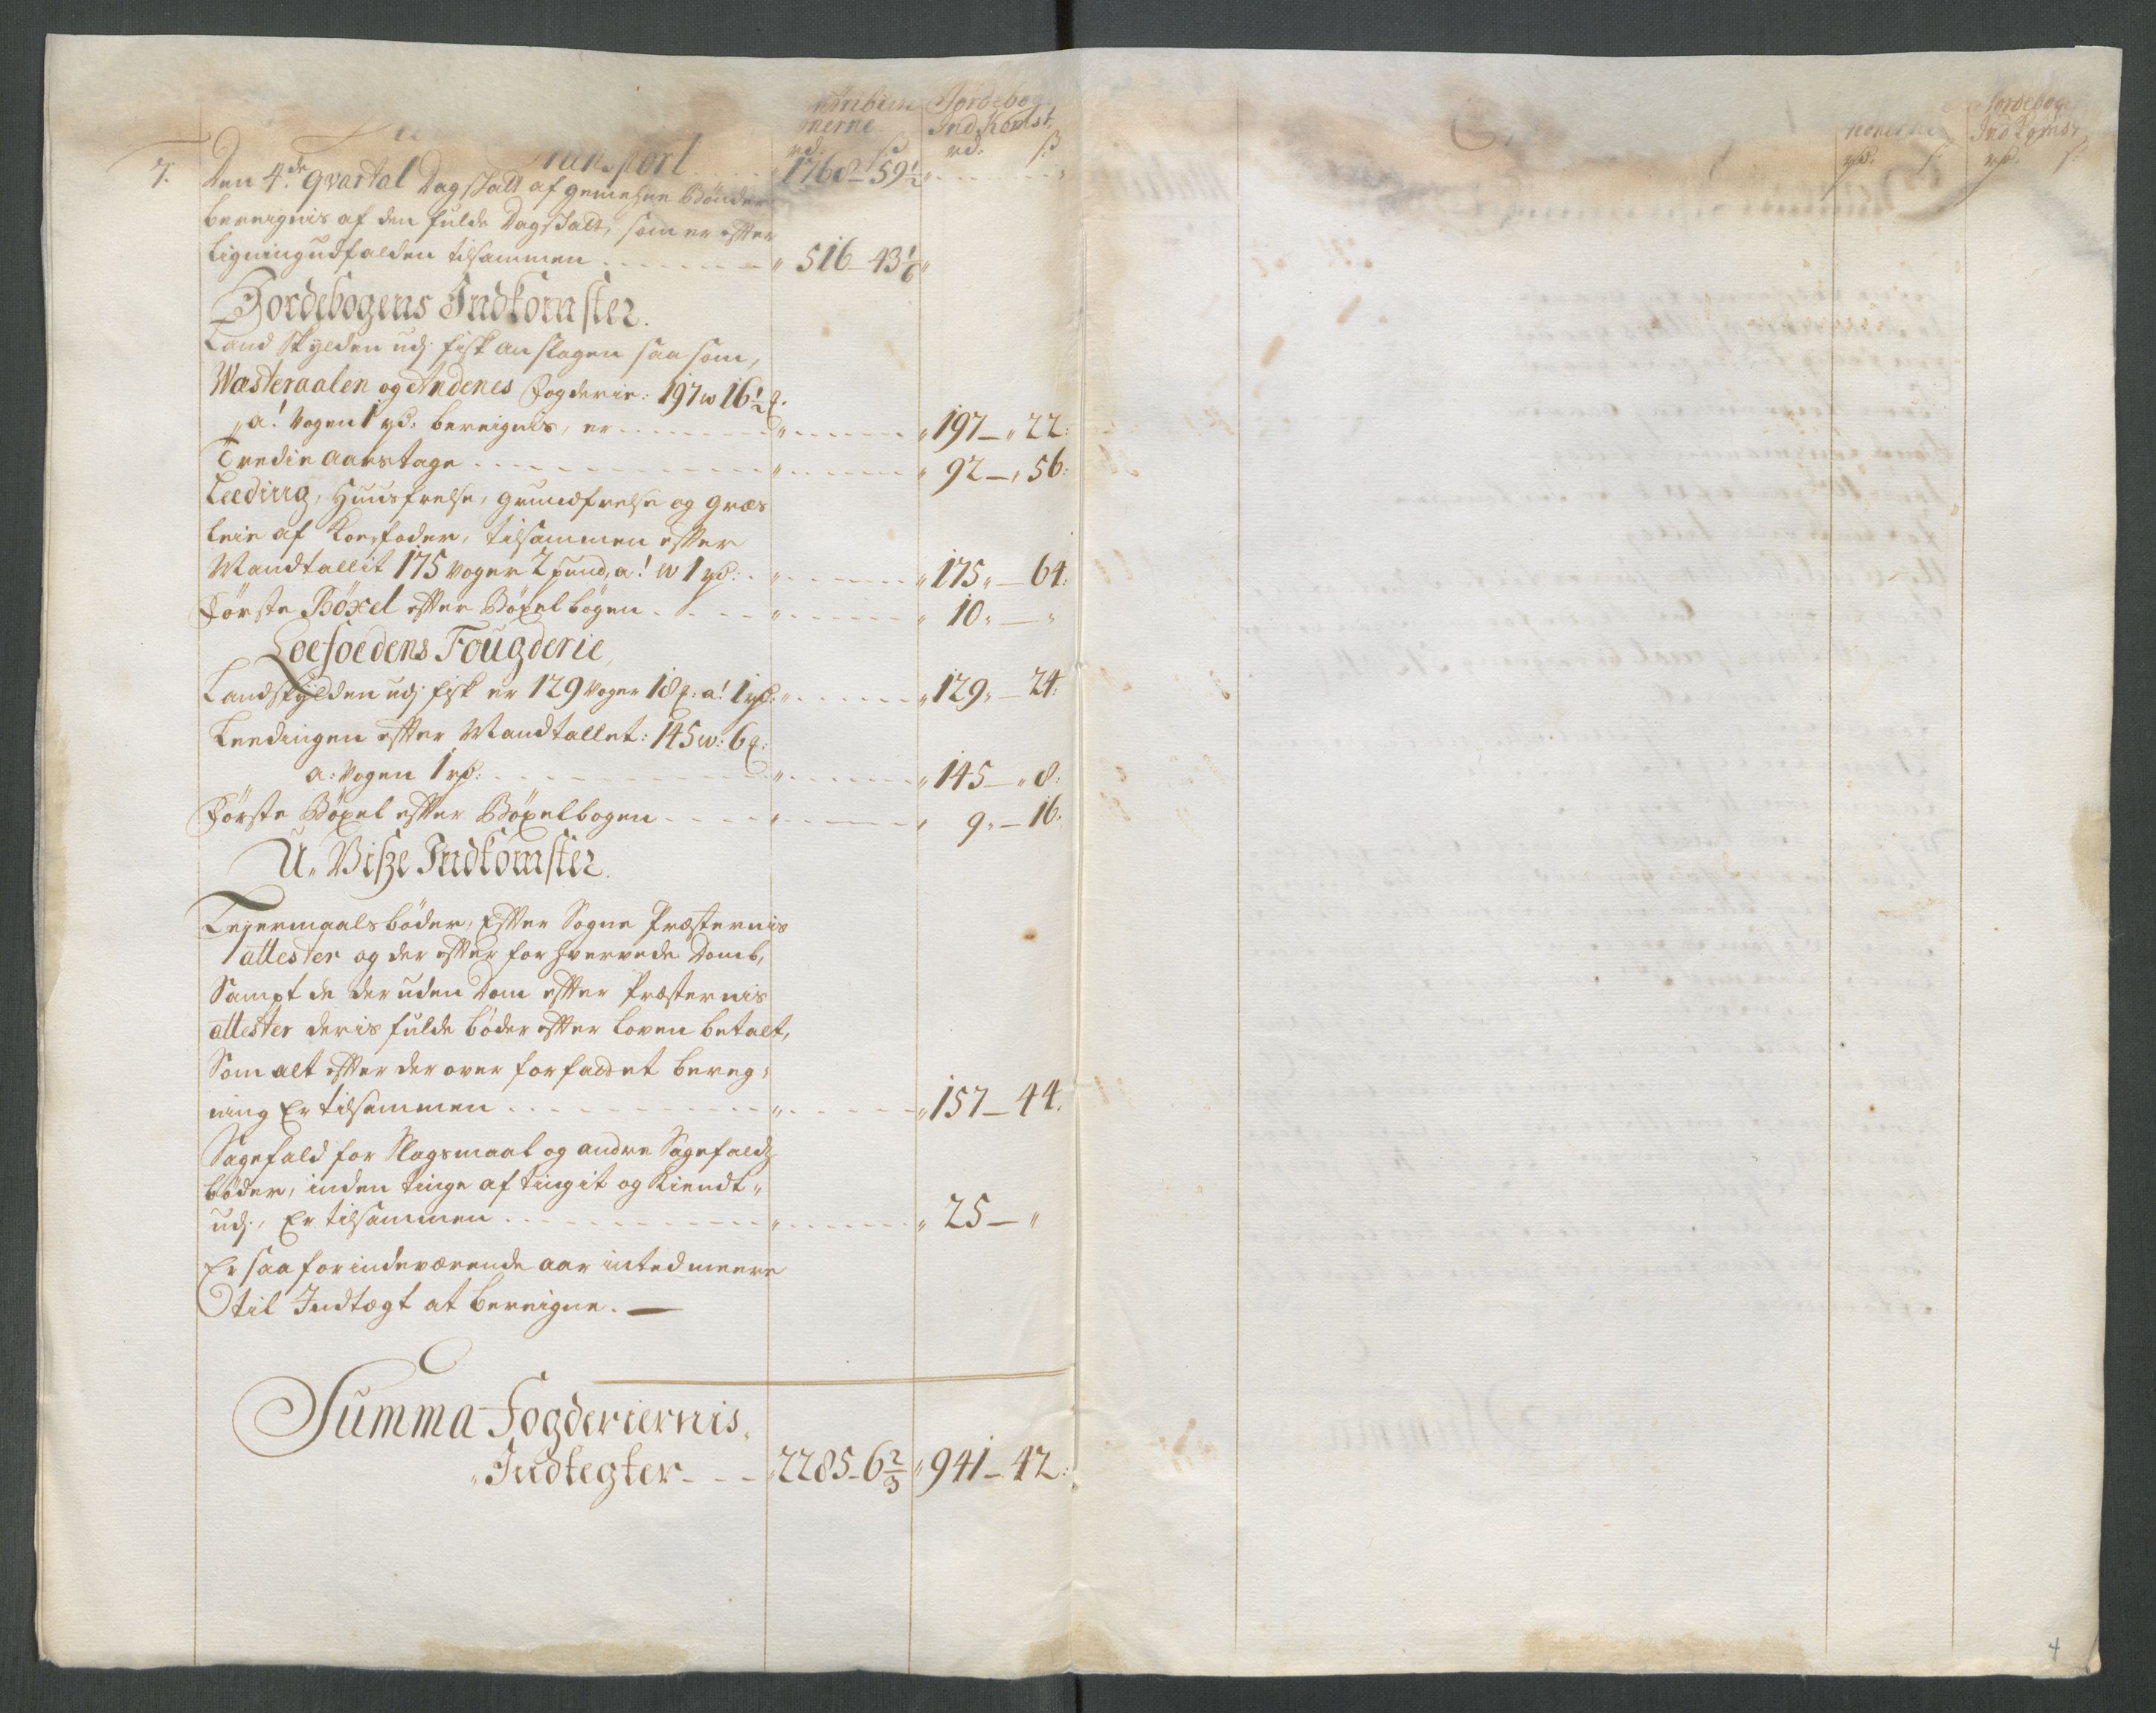 Jordebog
onerne Ind Komst,
rd: ß rd: ß
Transport 1768 - 59½
7. Den 4de. qvartal Dagskatt af gemehne Bönder
bereignis af den fulde Dagskatt, som er efter
Ligning udfalden tilsammen " 516 - 43 1/6 "
Jordebogens Indkomster.
Land Skylden udj fisk anslagen saa som,
Wæsteraalen og Andenes Fogderie: 197 w 16½ ꝑ.
" a! Vogen 1 rd: bereignis, er " 197 - " 22:
Tredie aarstage " 92 - , 56:
Leeding, Huusfrelse, grundfrelse og græs
leie af Koe,foder, tilsammen efter
Mandtallit 175 Voger 2 pund, a! w 1 rd: " 175 " - 64:
Förste Böxel efter Böxelbogen " 10 " - "
Loefoedens Fougderie,
Landskylden udj fisk er 129 Voger 18 ꝑ: a! 1 rd: " 129 " - 24:
Leedingen efter Mandtallet: 145 w: 6 ꝑ:
" a: Vogen 1 rd: " 145 - " 8:
Förste Böxel efter Böxelbogen " 9 " - 16.
U, Viſze Indkomster.
Lejermaalsböder, Efter Sogne Præsternis
attester og der efter forhvervede Domb,
Sampt de der uden Dom efter Præsternis
attester deris fulde böder efter Loven betalt,
Som alt efter der over forfattet bereg,
ning Er tilsammen " 157 - 44.
Sagefald for Slagsmaal og andre Sagefalds
böder, inden tinge aftingit og Kiendt "
udj, Er tilsammen " 25 - "
Er saa for indeværende aar inted meere
til Indtægt at bereigne. —
Summa Fogderiernis,
" Indtegter - - - " 2285 - 6⅔ " 941 - 42:
Jordebogs
Ind Komst
rd: ß: rd: ß:
4